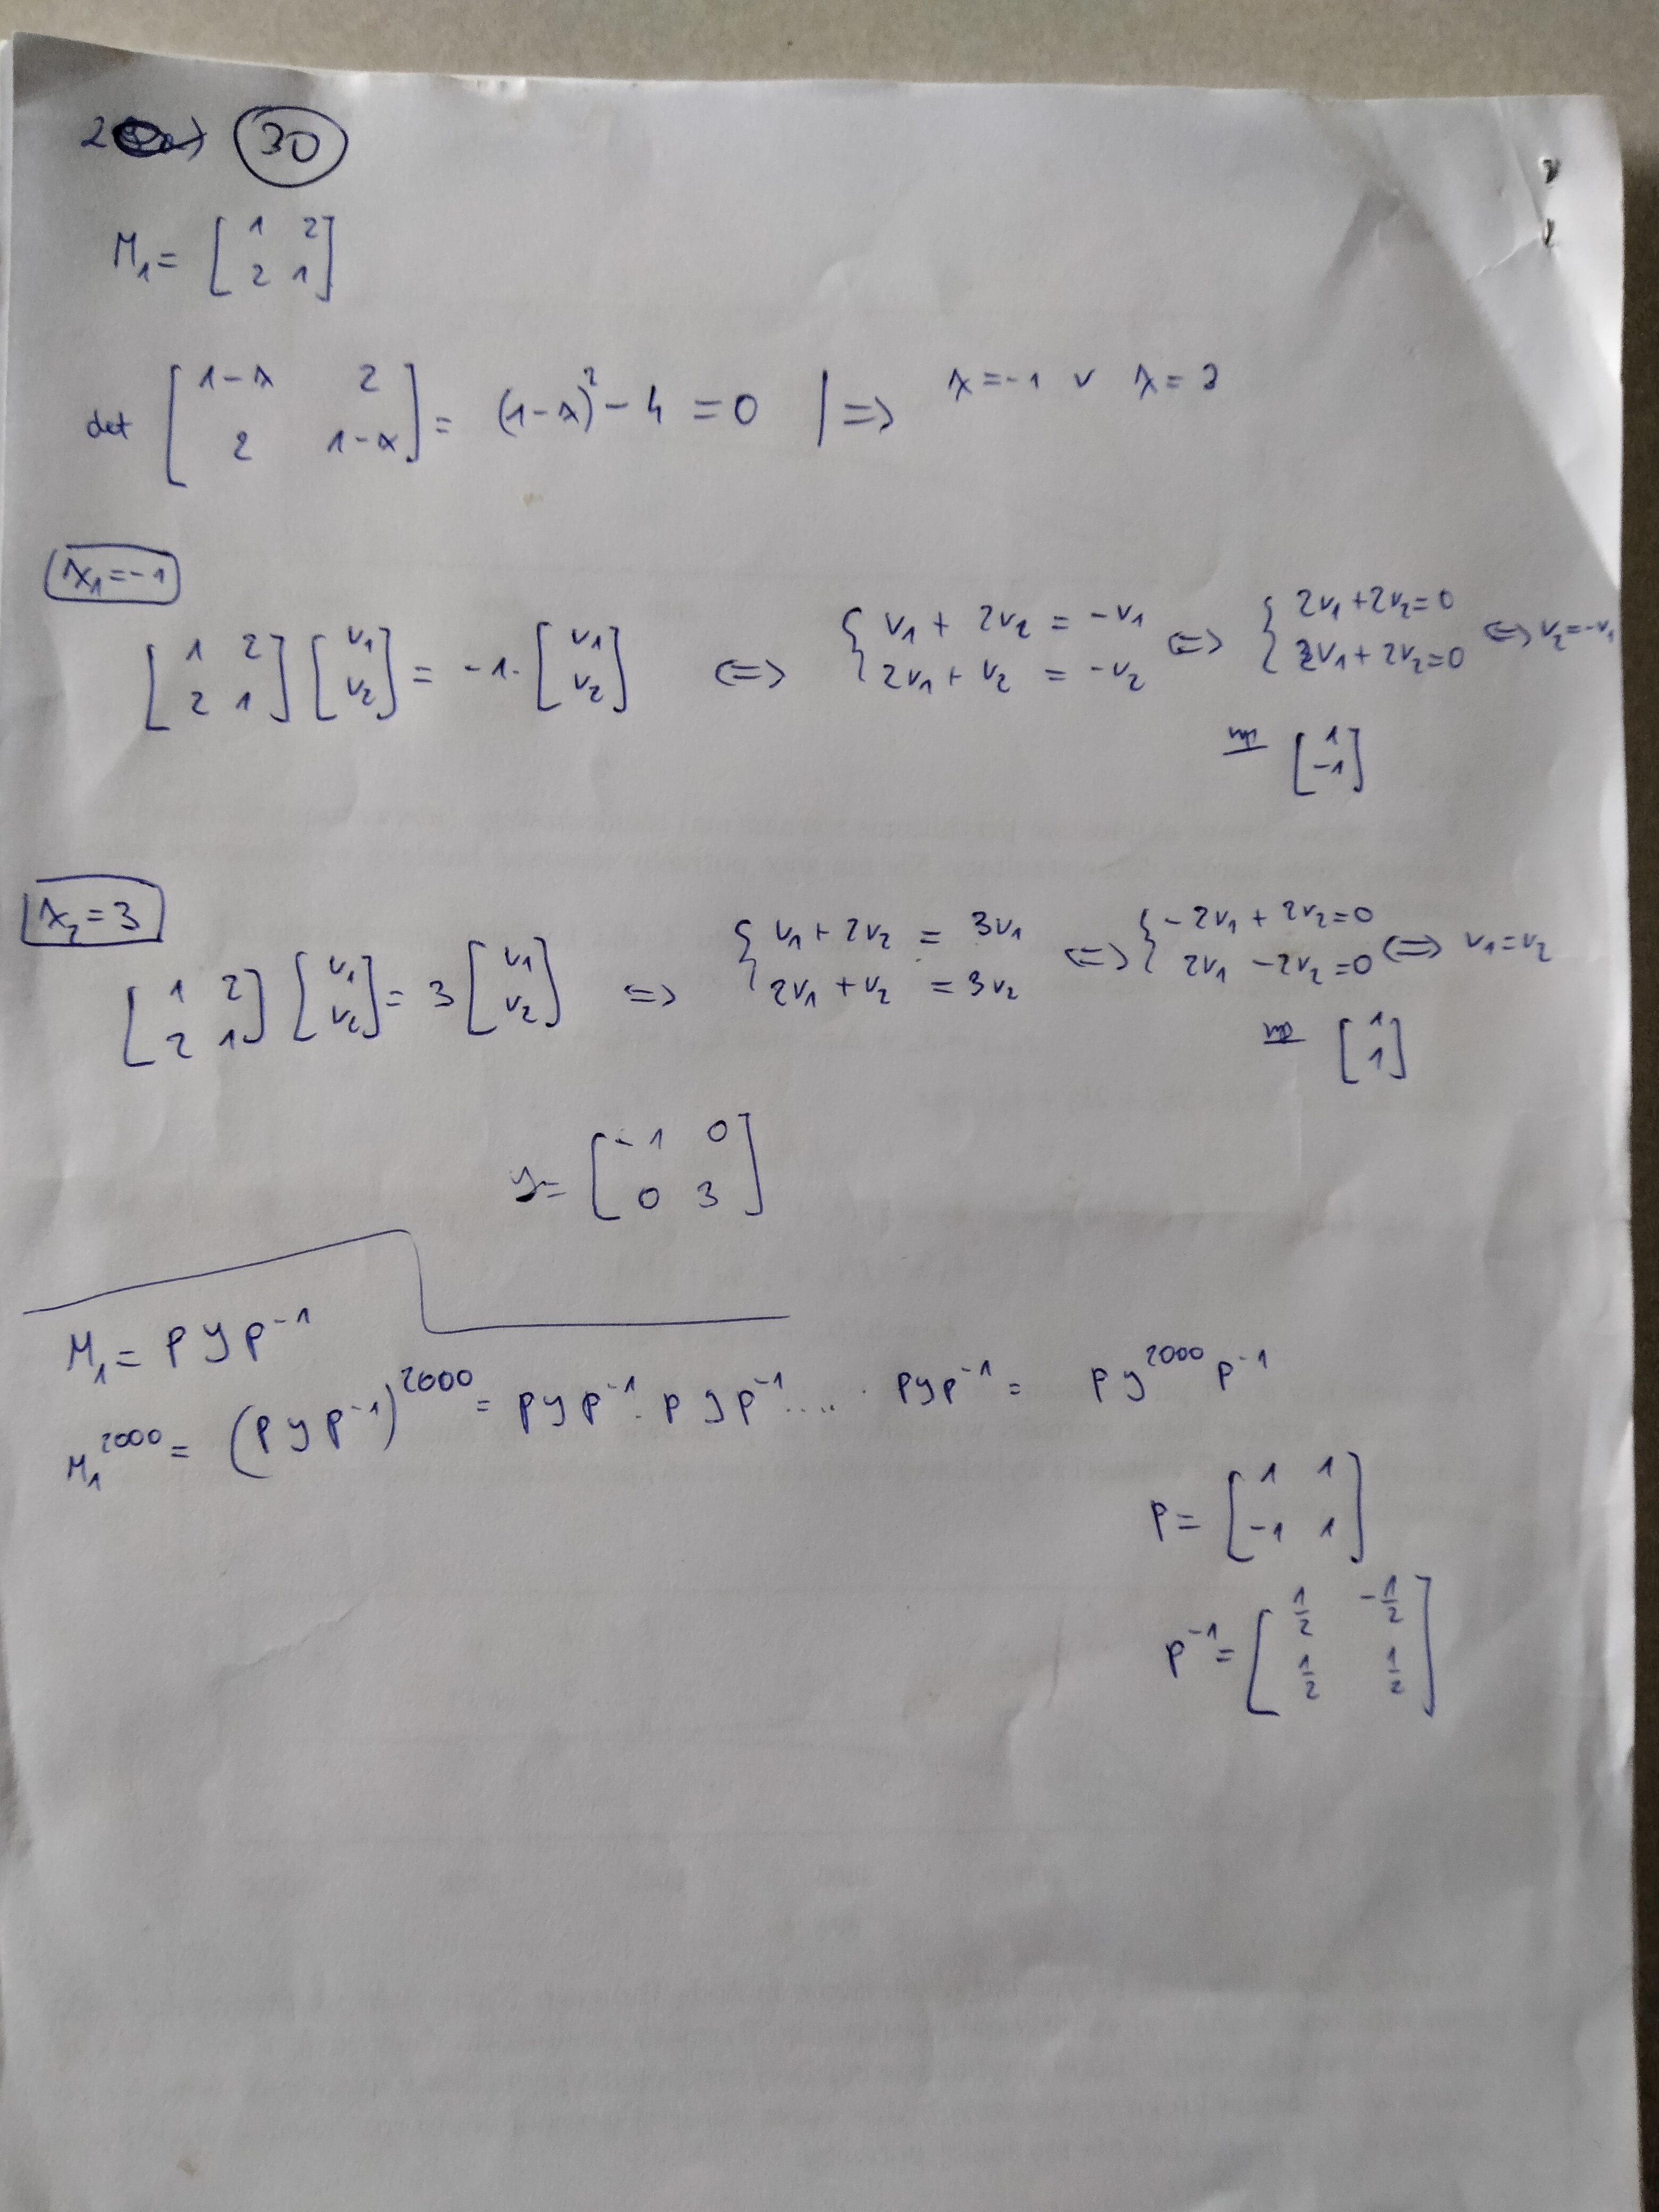 2 30
M₁ = [1 2; 2 1]
det [1-λ 2; 2 1-λ] = (1-λ)² - 4 = 0 | ⇒ λ = -1 ∨ λ = 3
λ₁ = -1
[1 2; 2 1] [v₁; v₂] = -1· [v₁; v₂] ⇔ { v₁ + 2v₂ = -v₁; 2v₁ + v₂ = -v₂ ⇔ { 2v₁ + 2v₂ = 0; 2v₁ + 2v₂ = 0 ⇔ v₂ = -v₁
np [1; -1]
λ₂ = 3
[1 2; 2 1] [v₁; v₂] = 3 [v₁; v₂] ⇔ { v₁ + 2v₂ = 3v₁; 2v₁ + v₂ = 3v₂ ⇔ { -2v₁ + 2v₂ = 0; 2v₁ - 2v₂ = 0 ⇔ v₁ = v₂
np [1; 1]
y = [-1 0; 0 3]
M₁ = P y P⁻¹
M₁²⁰⁰⁰ = (P y P⁻¹)²⁰⁰⁰ = P y P⁻¹ · P y P⁻¹ .... · P y P⁻¹ = P y²⁰⁰⁰ P⁻¹
P = [1 1; -1 1]
P⁻¹ = [1/2 -1/2; 1/2 1/2]